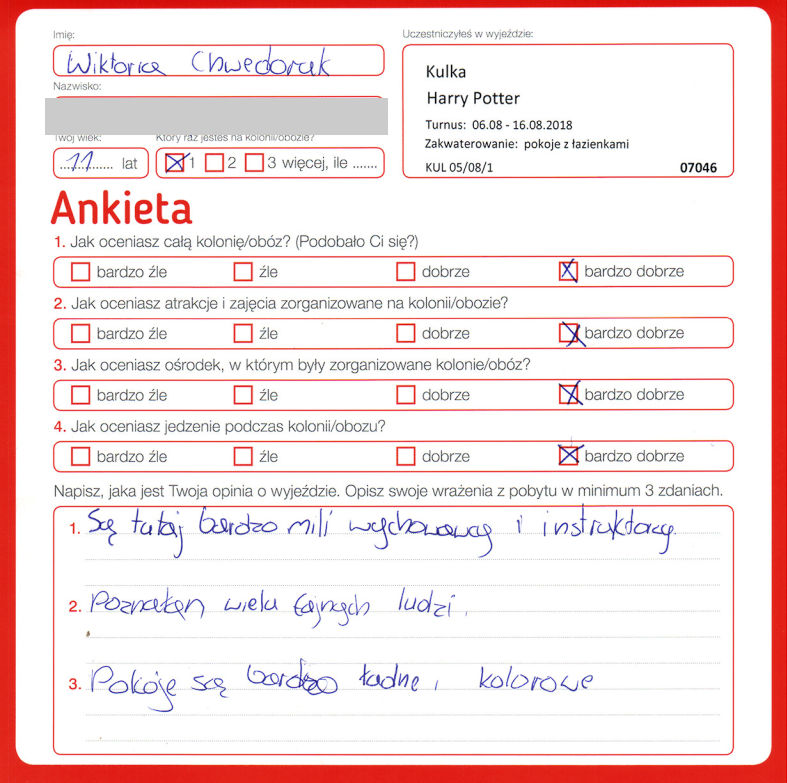 Imię:
Wiktoria Chwedoruk
Nazwisko:
Twój wiek:
11 lat
Który raz jesteś na kolonii/obozie?
1 2 3 więcej, ile .......
Uczestniczyłeś w wyjeździe:
Kulka
Harry Potter
Turnus: 06.08 - 16.08.2018
Zakwaterowanie: pokoje z łazienkami
KUL 05/08/1 07046
Ankieta
1. Jak oceniasz całą kolonię/obóz? (Podobało Ci się?)
bardzo źle źle dobrze bardzo dobrze
2. Jak oceniasz atrakcje i zajęcia zorganizowane na kolonii/obozie?
bardzo źle źle dobrze bardzo dobrze
3. Jak oceniasz ośrodek, w którym były zorganizowane kolonie/obóz?
bardzo źle źle dobrze bardzo dobrze
4. Jak oceniasz jedzenie podczas kolonii/obozu?
bardzo źle źle dobrze bardzo dobrze
Napisz, jaka jest Twoja opinia o wyjeździe. Opisz swoje wrażenia z pobytu w minimum 3 zdaniach.
1. Są tutaj bardzo mili wychowawcy i instruktorzy.
2. Poznałam wielu fajnych ludzi.
3. Pokoje są bardzo ładne, kolorowe